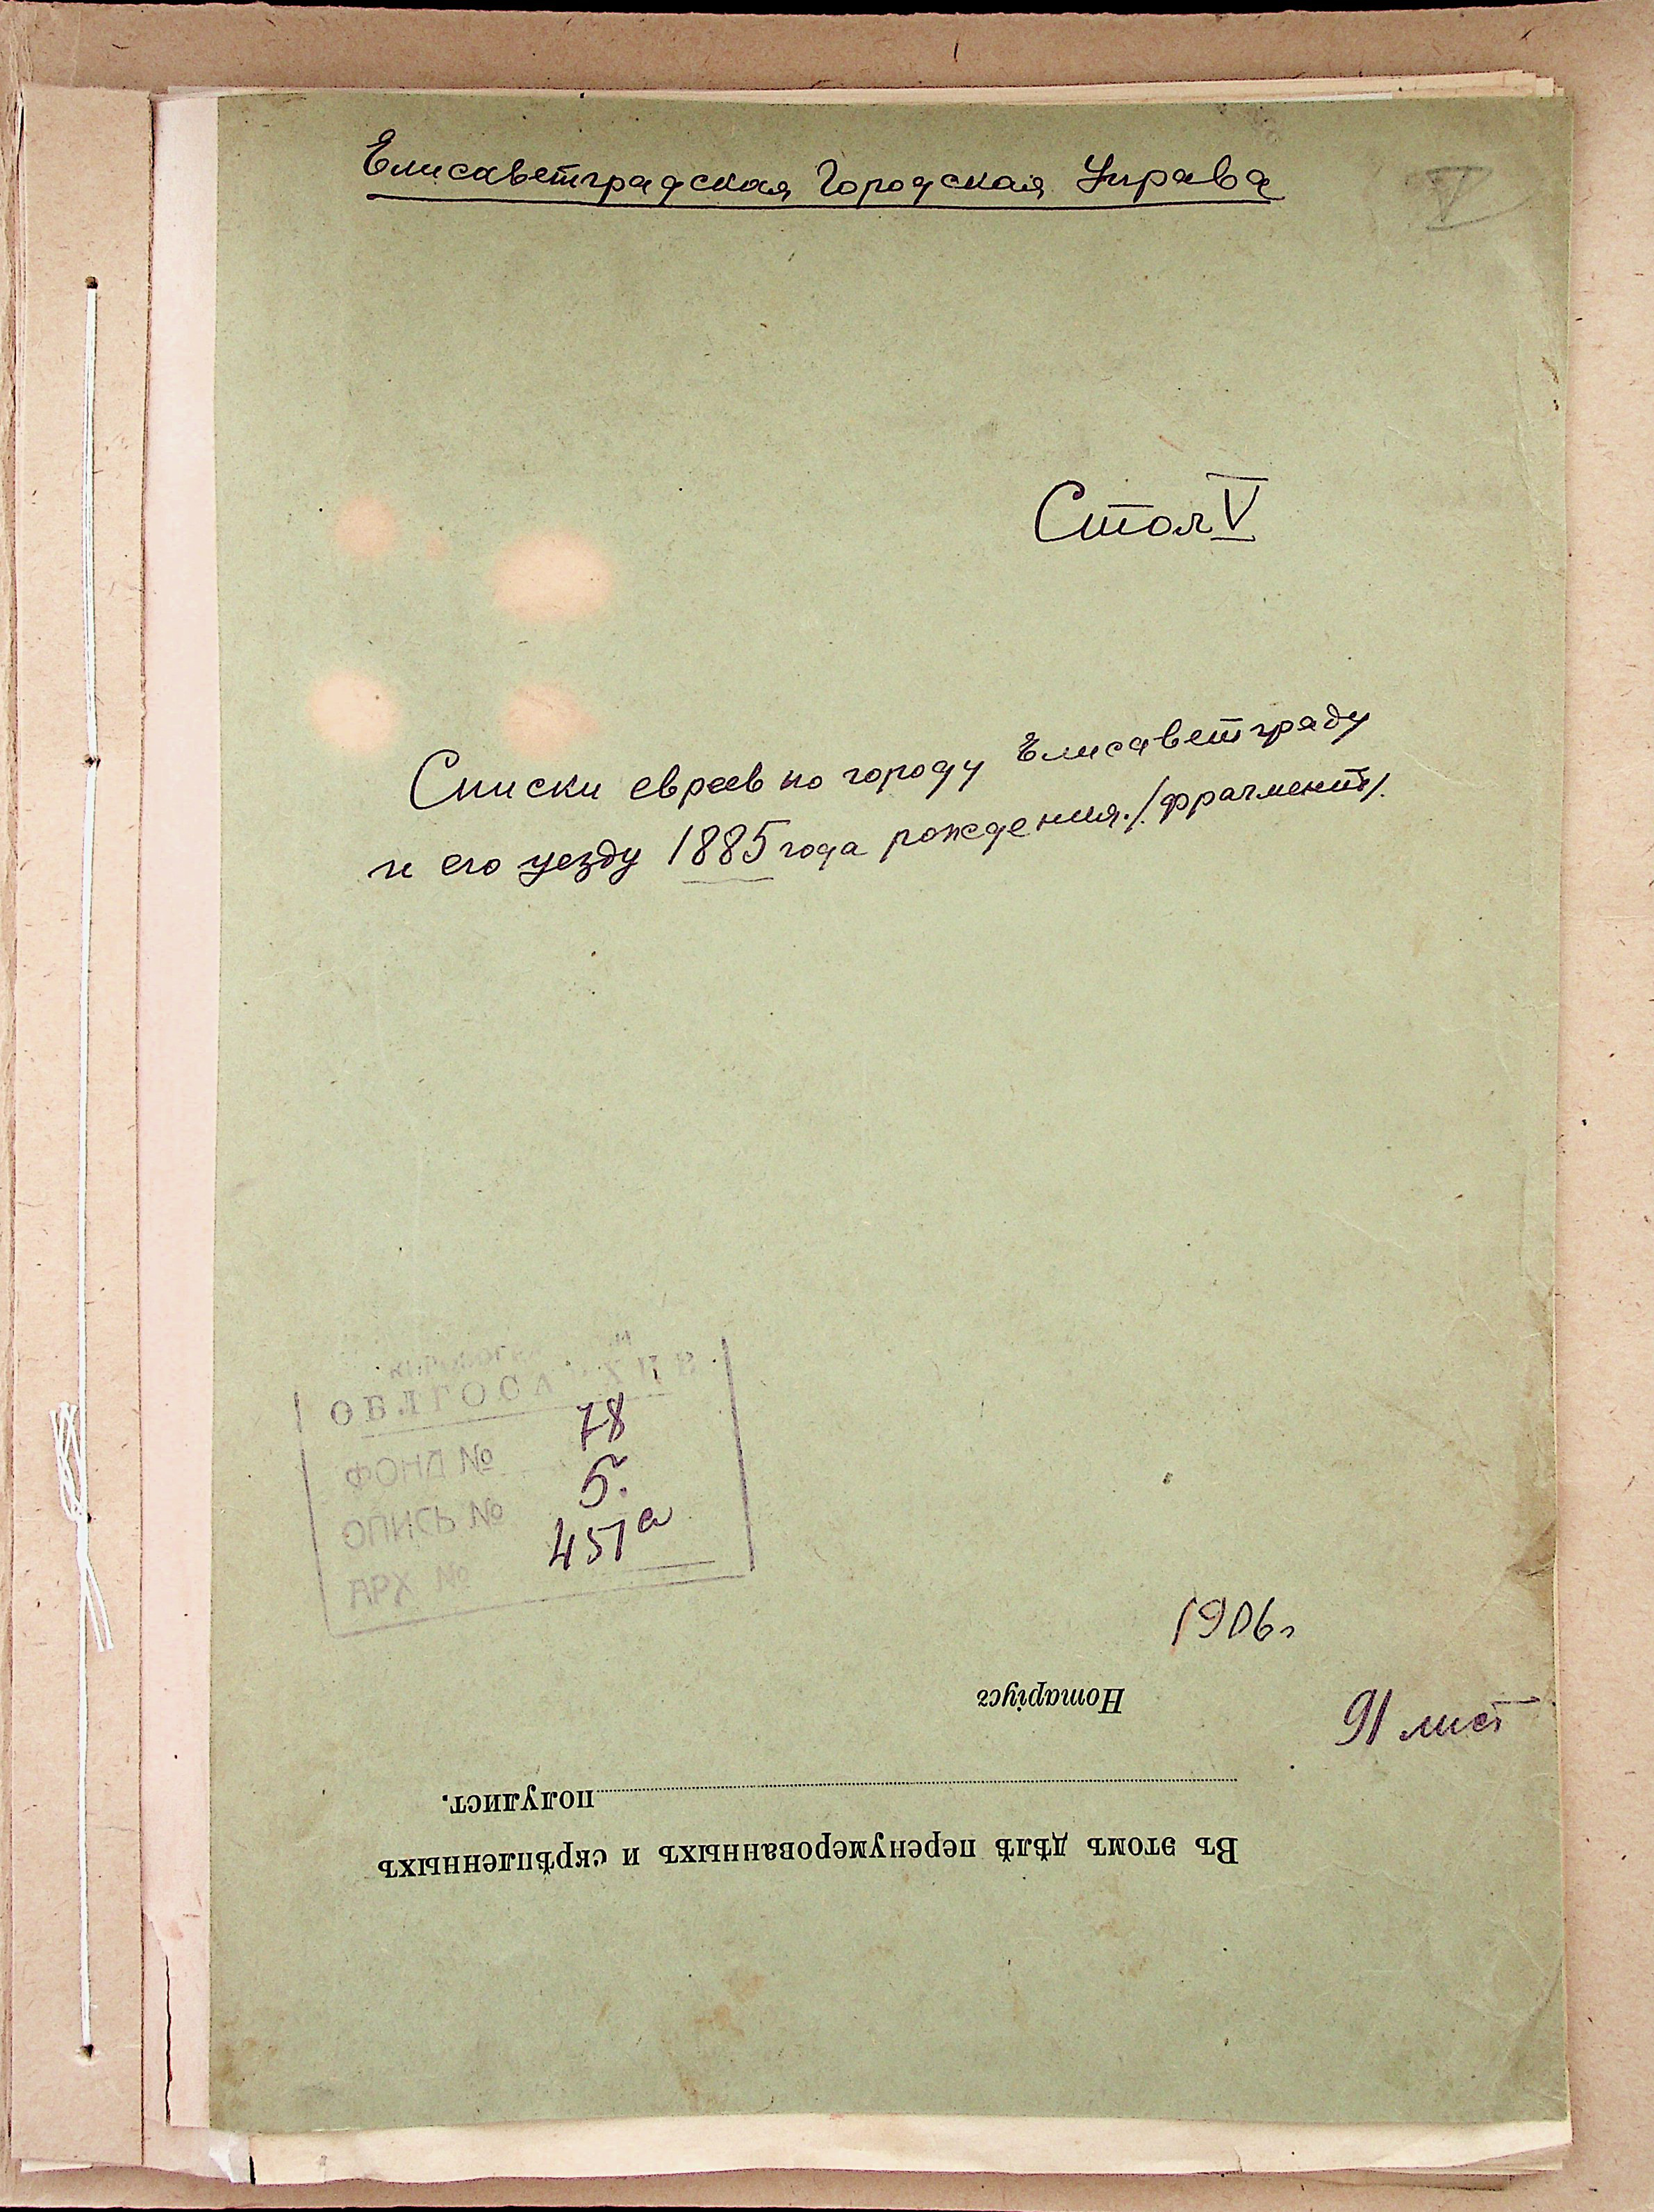 Елисаветградская Городская Управа
V
Стол V
Списки евреев по городу Елисаветграду
и его уезду 1885 года рождения./фрагмент/.
ОБЛГОСАРХИВ
ФОНД № 78
ОПИСЬ № 5.
АРХ № 451а
1906 г
91 лист
Въ этомъ дѣлѣ перенумерованныхъ и скрѣпленныхъ
полулист.
Нотаріусъ